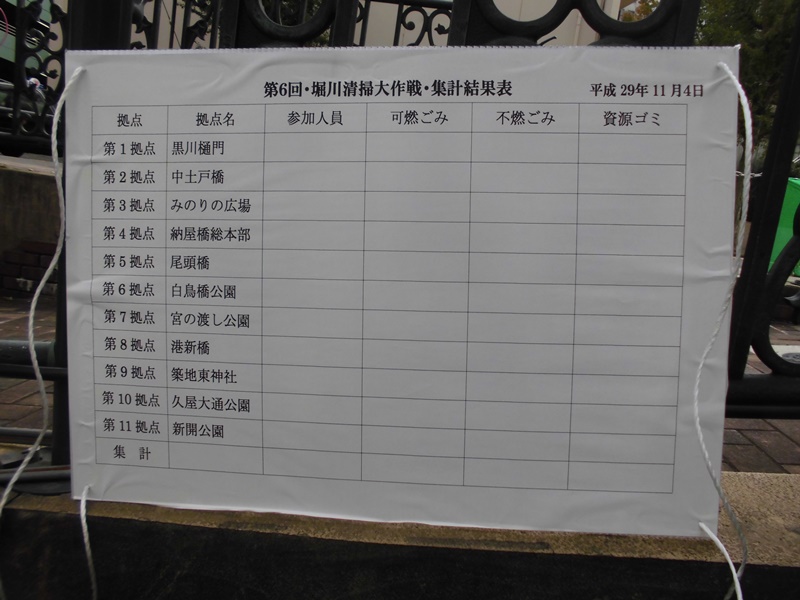 第6回・堀川清掃大作戦・集計結果表 平成 29年 11月4日
拠点 拠点名 参加人員 可燃ごみ 不燃ごみ 資源ゴミ
第1拠点 黒川樋門
第2拠点 中土戸橋
第3拠点 みのりの広場
第4拠点 納屋橋総本部
第5拠点 尾頭橋
第6拠点 白鳥橋公園
第7拠点 宮の渡し公園
第8拠点 港新橋
第9拠点 築地東神社
第10拠点 久屋大通公園
第11拠点 新開公園
集 計